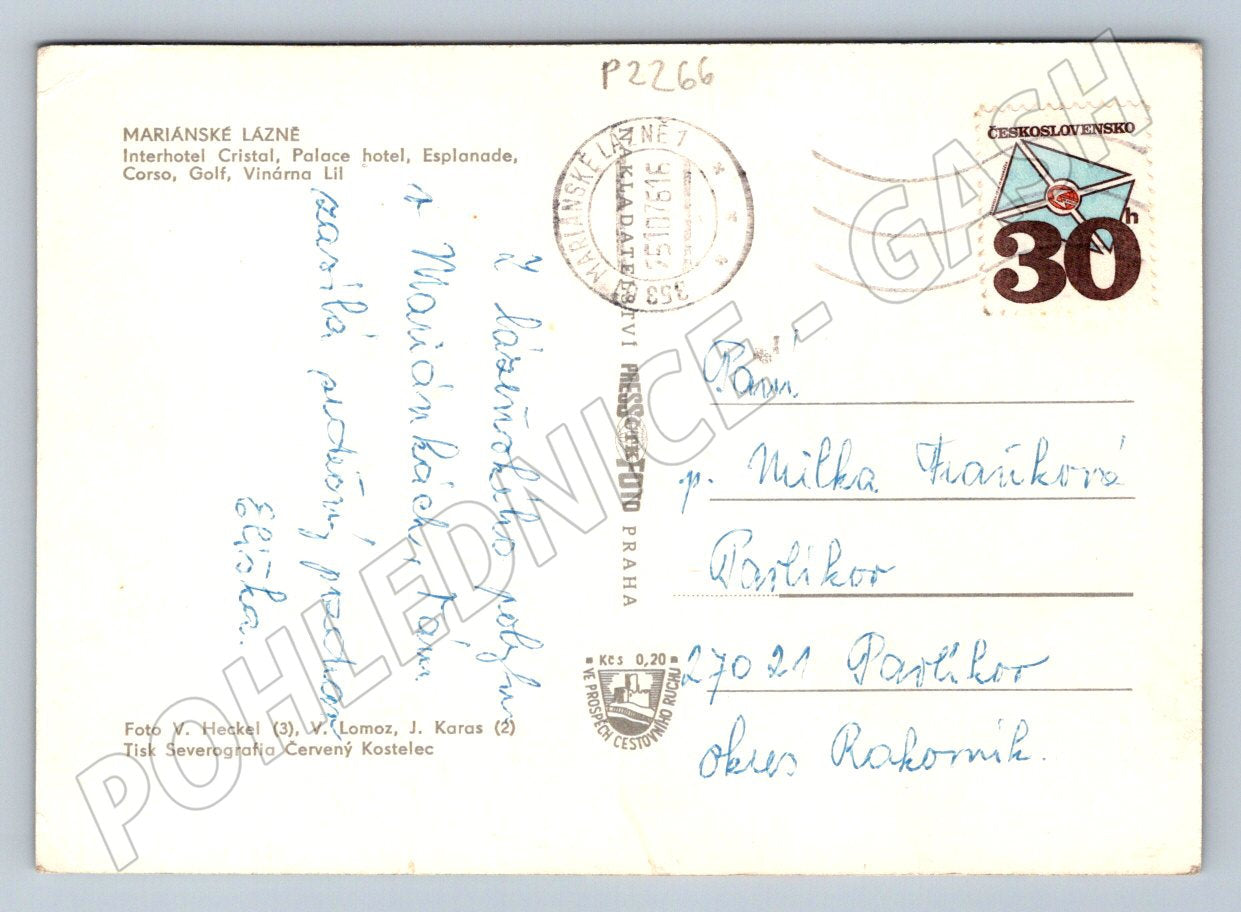 P2266
MARIÁNSKÉ LÁZNĚ
Interhotel Cristal, Palace hotel, Esplanade,
Corso, Golf, Vinárna Lil
Z lázeňského pobytu
v Mariánkách, Vám
zasílá srdečný pozdrav
Eliška.
Foto V. Heckel (3), V. Lomoz, J. Karas (2)
Tisk Severografia Červený Kostelec
MARIÁNSKÉ LÁZNĚ 1
353
NAKLADATELSTVÍ PRESSFOTO PRAHA
ČTK
Kčs 0,20
VE PROSPĚCH CESTOVNÍHO RUCHU
ČESKOSLOVENSKO
30h
Paní
p. Milka Fraňková
Pavlíkov
27021 Pavlíkov
okres Rakovník.
POHLEDNICE - GASH